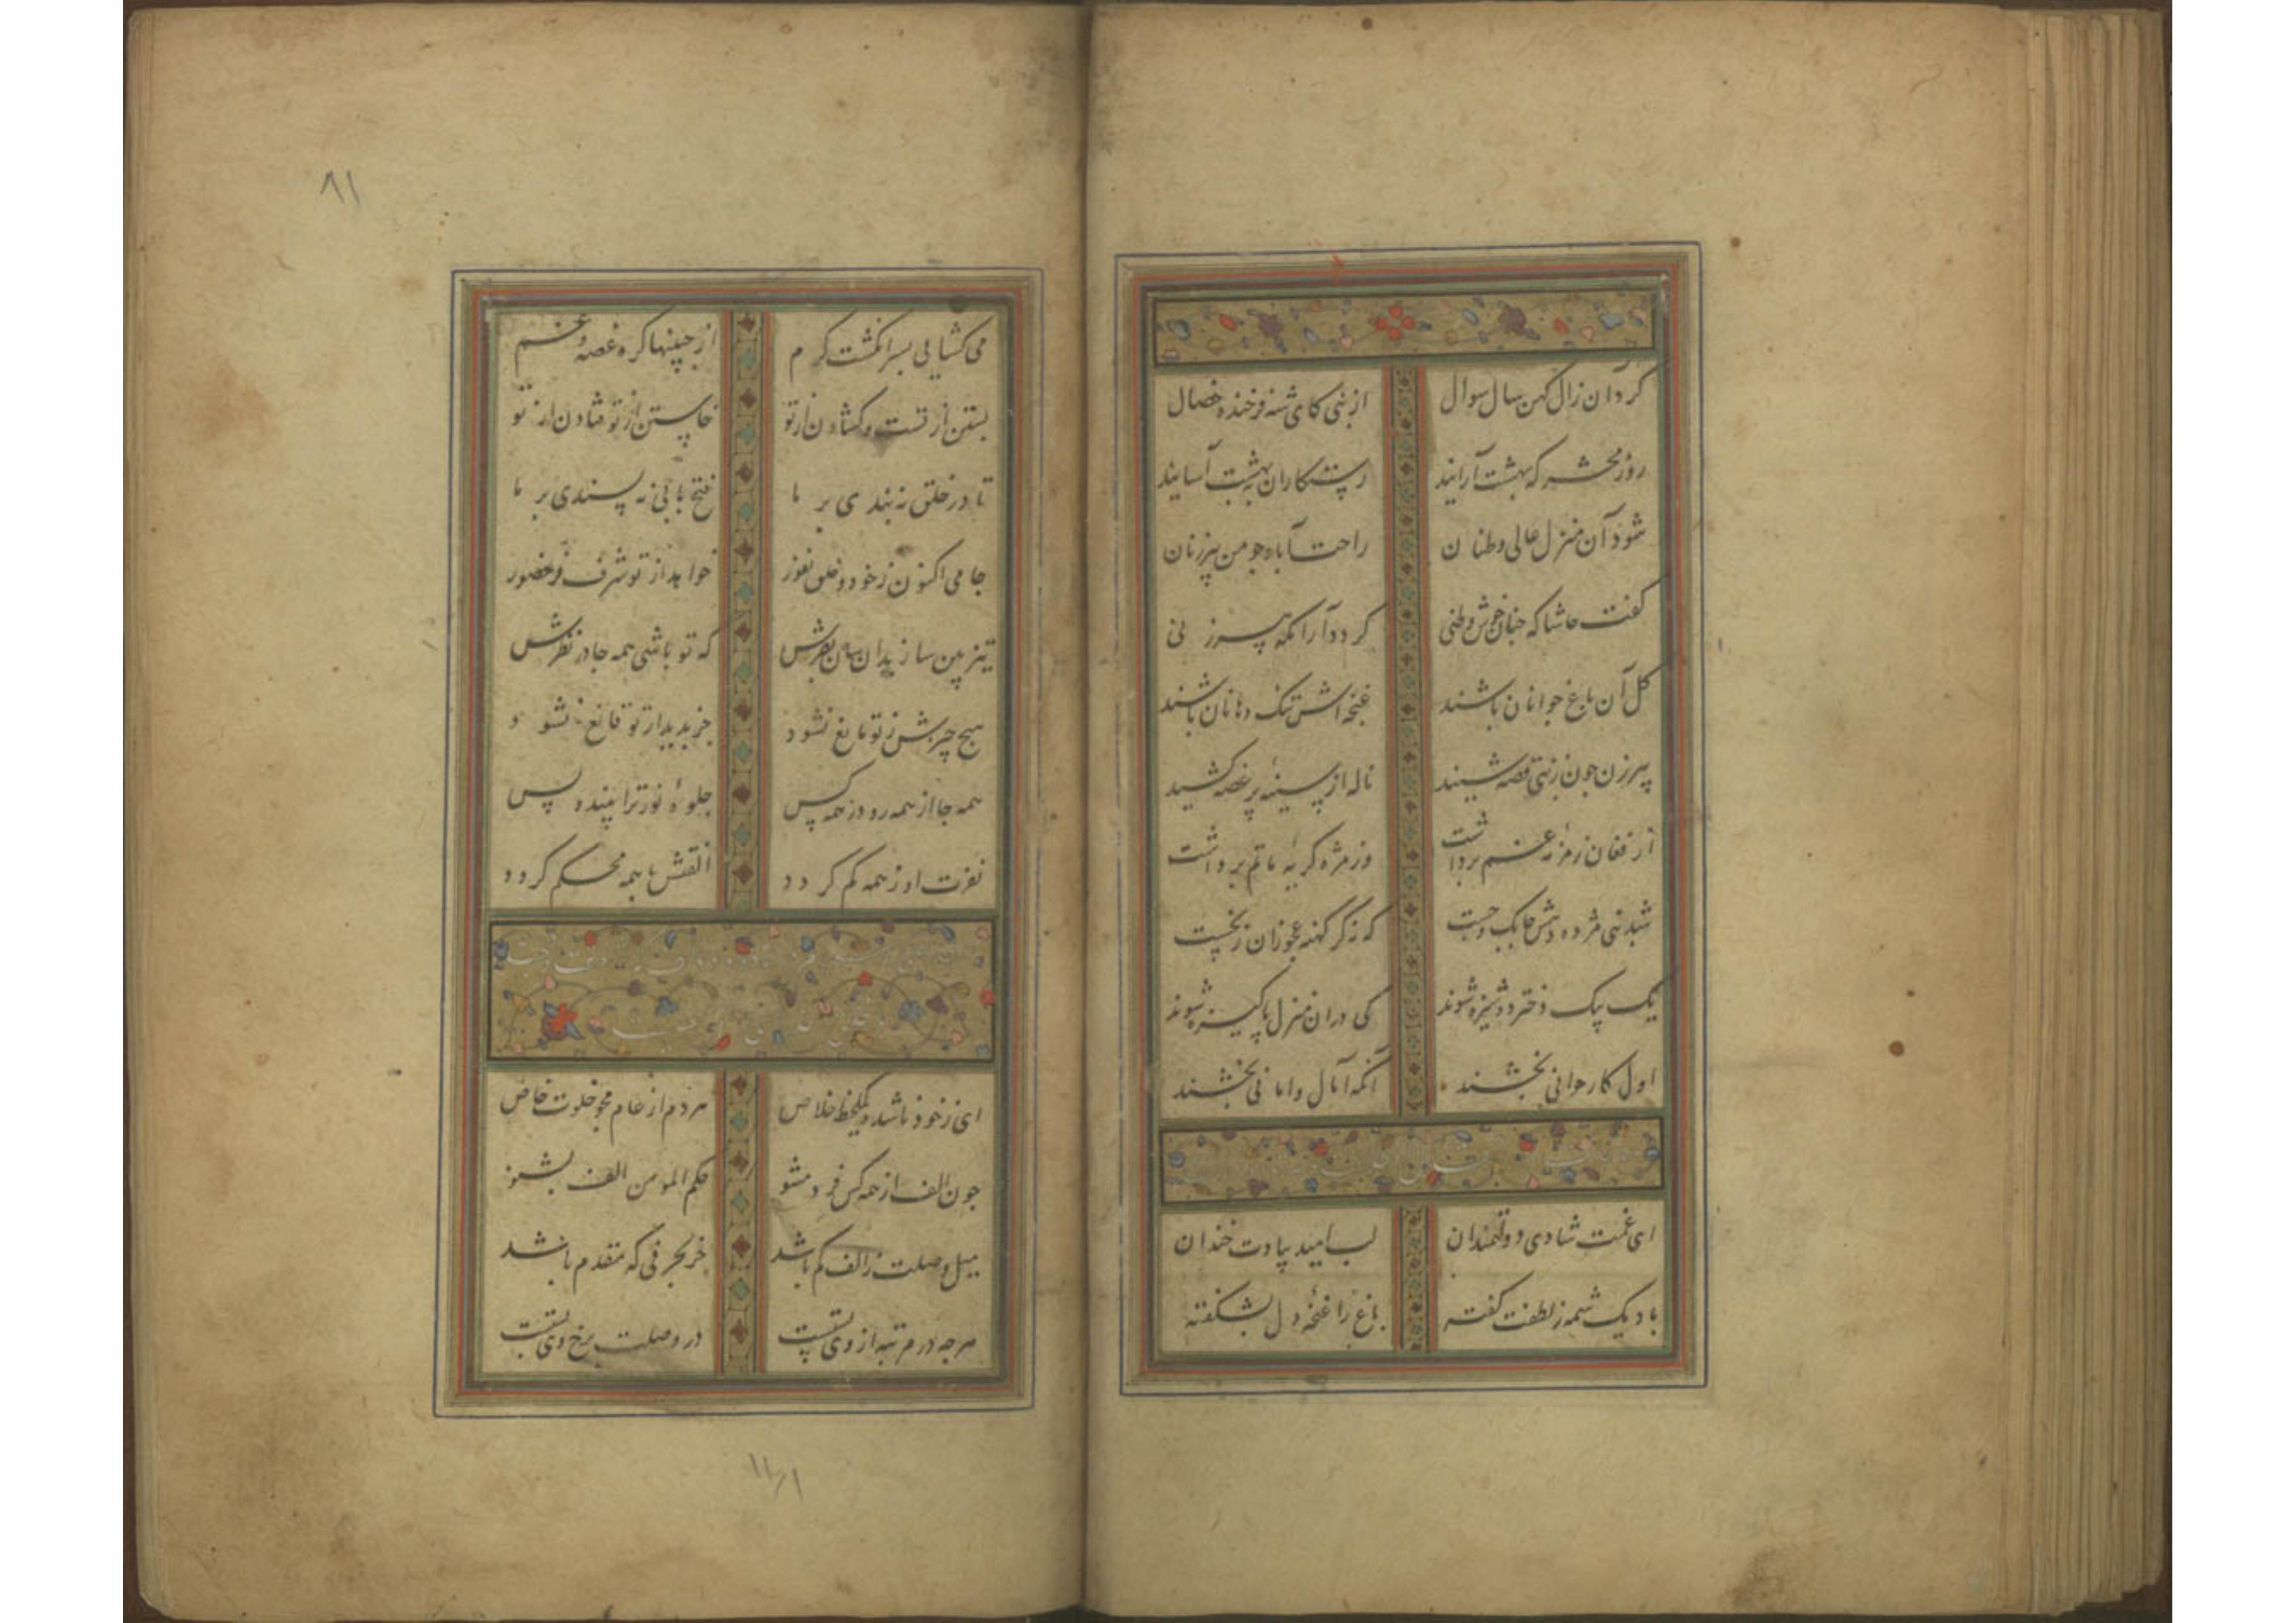 کرد آن زال کهن سال سوال
از نبی کای شه فرخنده خصال
روز محشر که بهشت آرایند
رستکاران بهشت آسایند
شود آن منزل عالی وطنان
راحت آباد جو من پیرزنان
کفت حاشا که جنان خوش وطنی
کردد آرامکه پیرزنی
کل آن باغ جوانان باشند
غنچه اش تنک دهانان باشند
پیرزن جون ز نبی قصه شنید
ناله از سینهٔ پر غصه کشید
از فغان زمزمهٔ غم برداشت
وز مژه کریهٔ ماتم برداشت
شد نبی مژده دهش جابک و جست
که ز کر کهنه عجوزان ز نخست
یک بیک دختر دوشیزه شوند
کی در ان منزل پاکیزه شوند
اول کار جوانی بخشند
آنکه آمال و امانی بخشند
ای غمت شادی دولتمندان
لب امید بیادت خندان
باد یک شمه ز لطفت کفته
باغ را غنچهٔ دل بشکفته
٨١
می کشایی بسر انکشت کرم
از جبینها کره غصه و غم
بستن از تست و کشادن از تو
خاستن از تو فتادن از تو
تا در خلق نبندی بر ما
فتح بابی نپسندی بر ما
جامی اکنون ز خود و خلق نفور
خواهد از تو شرف و حضور
تیزبین ساز بدان سان بصرش
که تو باشی همه جا در نظرش
هیج جیزش ز تو مانع نشود
جز بدیدار تو قانع نشود
همه جا از همه رو در همه کس
جلوهٔ نور ترا بیند و بس
نفرت او ز همه کم کردد
الفتش با همه محکم کردد
ای ز خود ناشده یکلحظه خلاص
مردم از عام مجو خلوت خاص
جون الف از همه کس فرد مشو
حکم المومن الف بشنو
میل وصلت ز الف کم باشد
جز بحرفی که مقدم باشد
هرجه در مرتبه از وی پست
در وصلت برخ وی بست